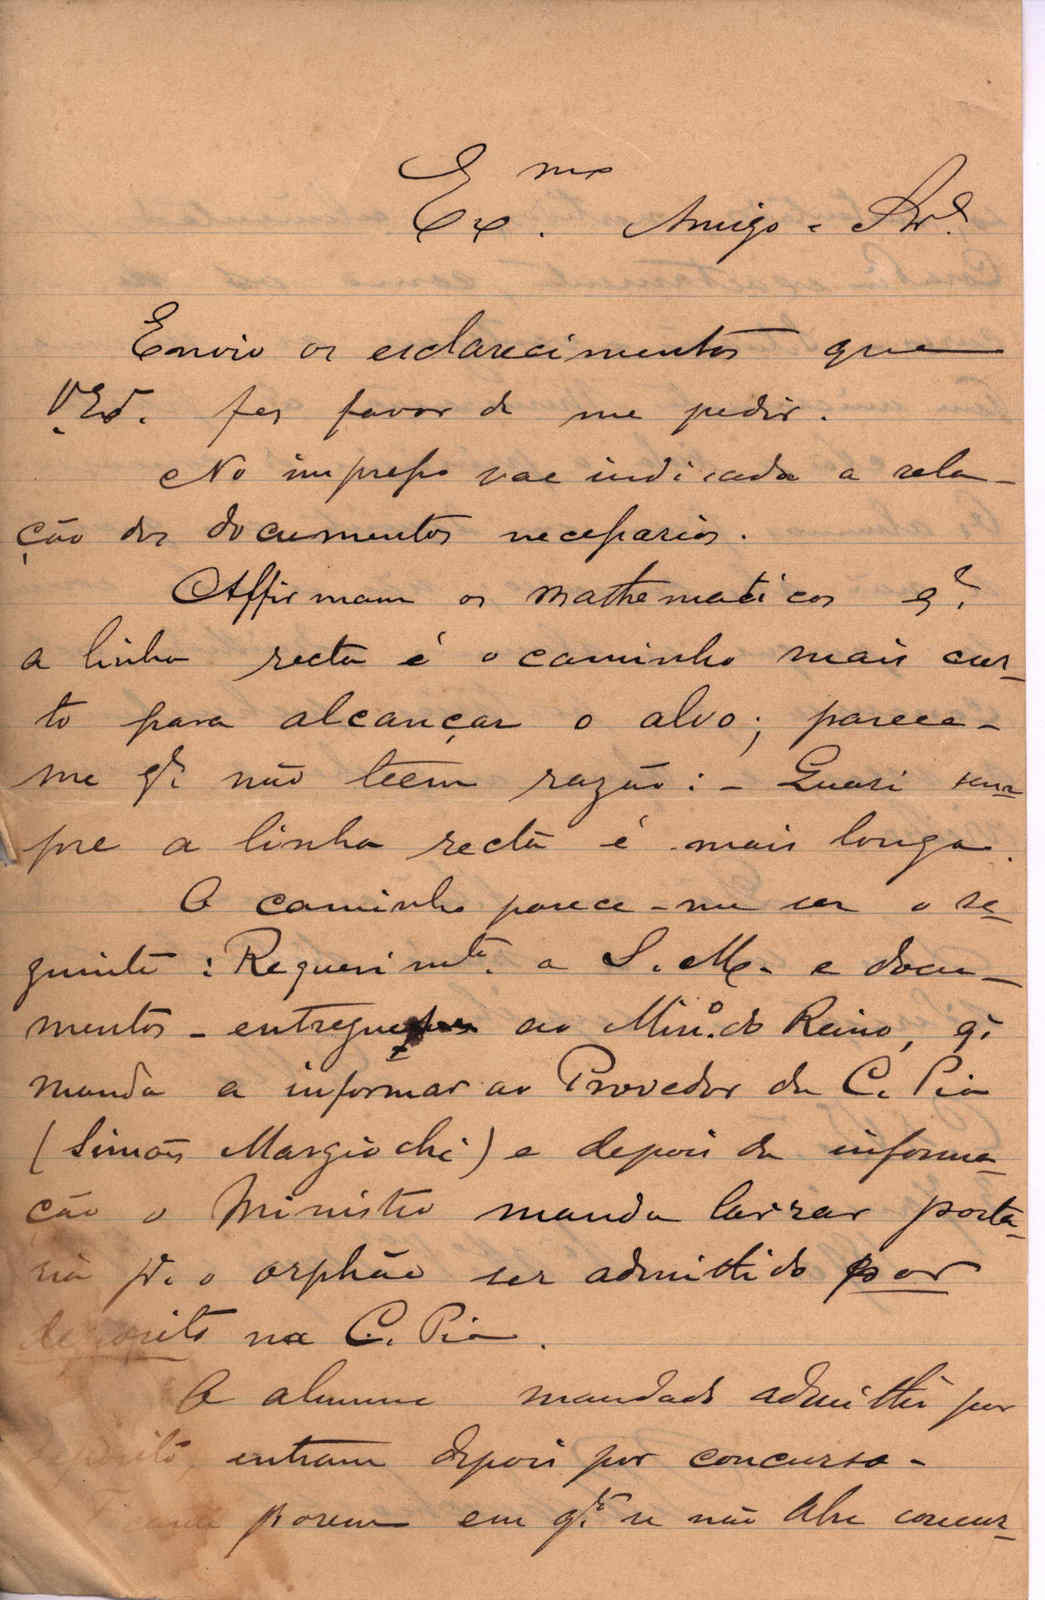 Ex.mo Amigo e Snr.
Envio os esclarecimentos que
V. Exª. fez favor de me pedir.
No impresso vae indicada a rela-
ção dos documentos necessarios.
Affirmam os mathematicos q.
a linha recta é o caminho mais cur-
to para alcançar o alvo; parece-
me q. não teem razão: - Quasi sem-
pre a linha recta é mais longa.
O caminho parece-me ser o se-
guinte: Requerimto. a S. M. e docu-
mentos - entregues ao Mino. do Reino, q.
manda a informar ao Provedor da C. Pia
(Simões Margiochi) e depois da informa-
ção o Ministro manda lavrar porta-
ria pa. o orphão ser admittido por
deposito na C. Pia.
O alumno mandado admittir por
deposito entram depois por concurso -
porem em q.to se não abre concur-